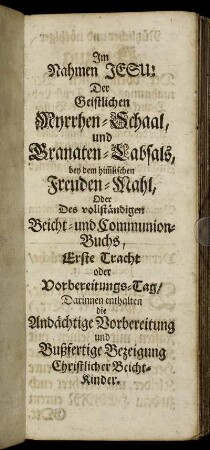 Im
Nahmen JESU:
Der
Geistlichen
Myrrhen-Schaal,
und
Granaten-Labsals,
bey dem him̃lischen
Freuden-Mahl,
Oder
Des vollständigen
Beicht- und Communion-
Buchs,
Erste Tracht
oder
Vorbereitungs-Tag/
Darinnen enthalten
die
Andächtige Vorbereitung
und
Bußfertige Bezeigung
Christlicher Beicht-
Kinder.